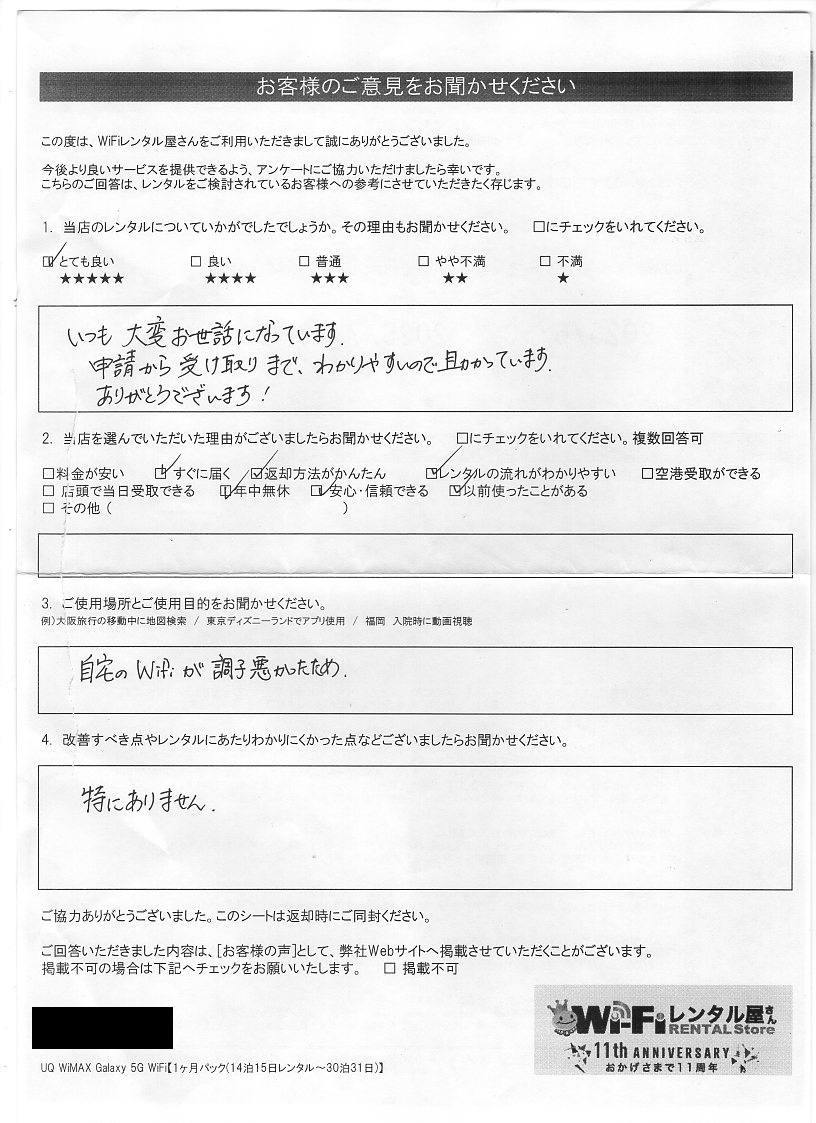 お客様のご意見をお聞かせください
この度は、WiFiレンタル屋さんをご利用いただきまして誠にありがとうございました。
今後より良いサービスを提供できるよう、アンケートにご協力いただけましたら幸いです。
こちらのご回答は、レンタルをご検討されているお客様への参考にさせていただきたく存じます。
1. 当店のレンタルについていかがでしたでしょうか。その理由もお聞かせください。 □にチェックをいれてください。
☑ とても良い □ 良い □ 普通 □ やや不満 □ 不満
★★★★★ ★★★★ ★★★ ★★ ★
いつも 大変お世話になっています.
申請から 受け取りまで、わかりやすいので助かっています.
ありがとうございます!
2. 当店を選んでいただいた理由がございましたらお聞かせください。 □にチェックをいれてください。複数回答可
□料金が安い ☑すぐに届く ☑返却方法がかんたん ☑レンタルの流れがわかりやすい □空港受取ができる
□ 店頭で当日受取できる ☑年中無休 ☑安心・信頼できる ☑以前使ったことがある
□ その他 ( )
3. ご使用場所とご使用目的をお聞かせください。
例)大阪旅行の移動中に地図検索 / 東京ディズニーランドでアプリ使用 / 福岡 入院時に動画視聴
自宅の WiFi が 調子悪かったため.
4. 改善すべき点やレンタルにあたりわかりにくかった点などございましたらお聞かせください。
特にありません.
ご協力ありがとうございました。このシートは返却時にご同封ください。
ご回答いただきました内容は、[お客様の声]として、弊社Webサイトへ掲載させていただくことがございます。
掲載不可の場合は下記へチェックをお願いいたします。 □ 掲載不可
Wi-Fiレンタル屋さん
RENTAL Store
11th ANNIVERSARY
おかげさまで11周年
UQ WiMAX Galaxy 5G WiFi【1ヶ月パック(14泊15日レンタル～30泊31日)】